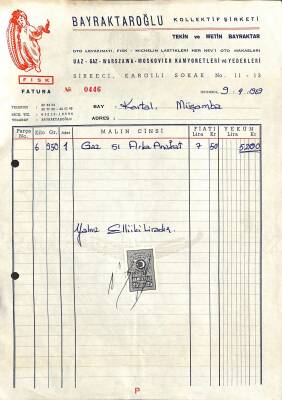 BAYRAKTAROĞLU KOLLEKTİF ŞİRKETİ
TEKİN ve METİN BAYRAKTAR
OTO LEVAZIMATI, FISK - MICHELIN LASTİKLERİ HER NEVİ OTO MAKASLARI
UAZ - GAZ - WARSZAWA - MOSKOVICH KAMYONETLERİ ve YEDEKLERİ
SİRKECİ, KARGILI SOKAK No. 11 - 13
FISK
FATURA
No 0446
İSTANBUL 9.9.1969
BAY: Kartal, Muşamba
ADRES:
TELEFON
TELGRAF : BAYRAKTAROĞLU
Parça No. Kilo Gr. Adet MALIN CİNSİ FİATI Lira Kr YEKÛN Lira Kr
6 950 1 Gaz 51 Arka 7 50 5200
Yalnız Elliiki Liradır.